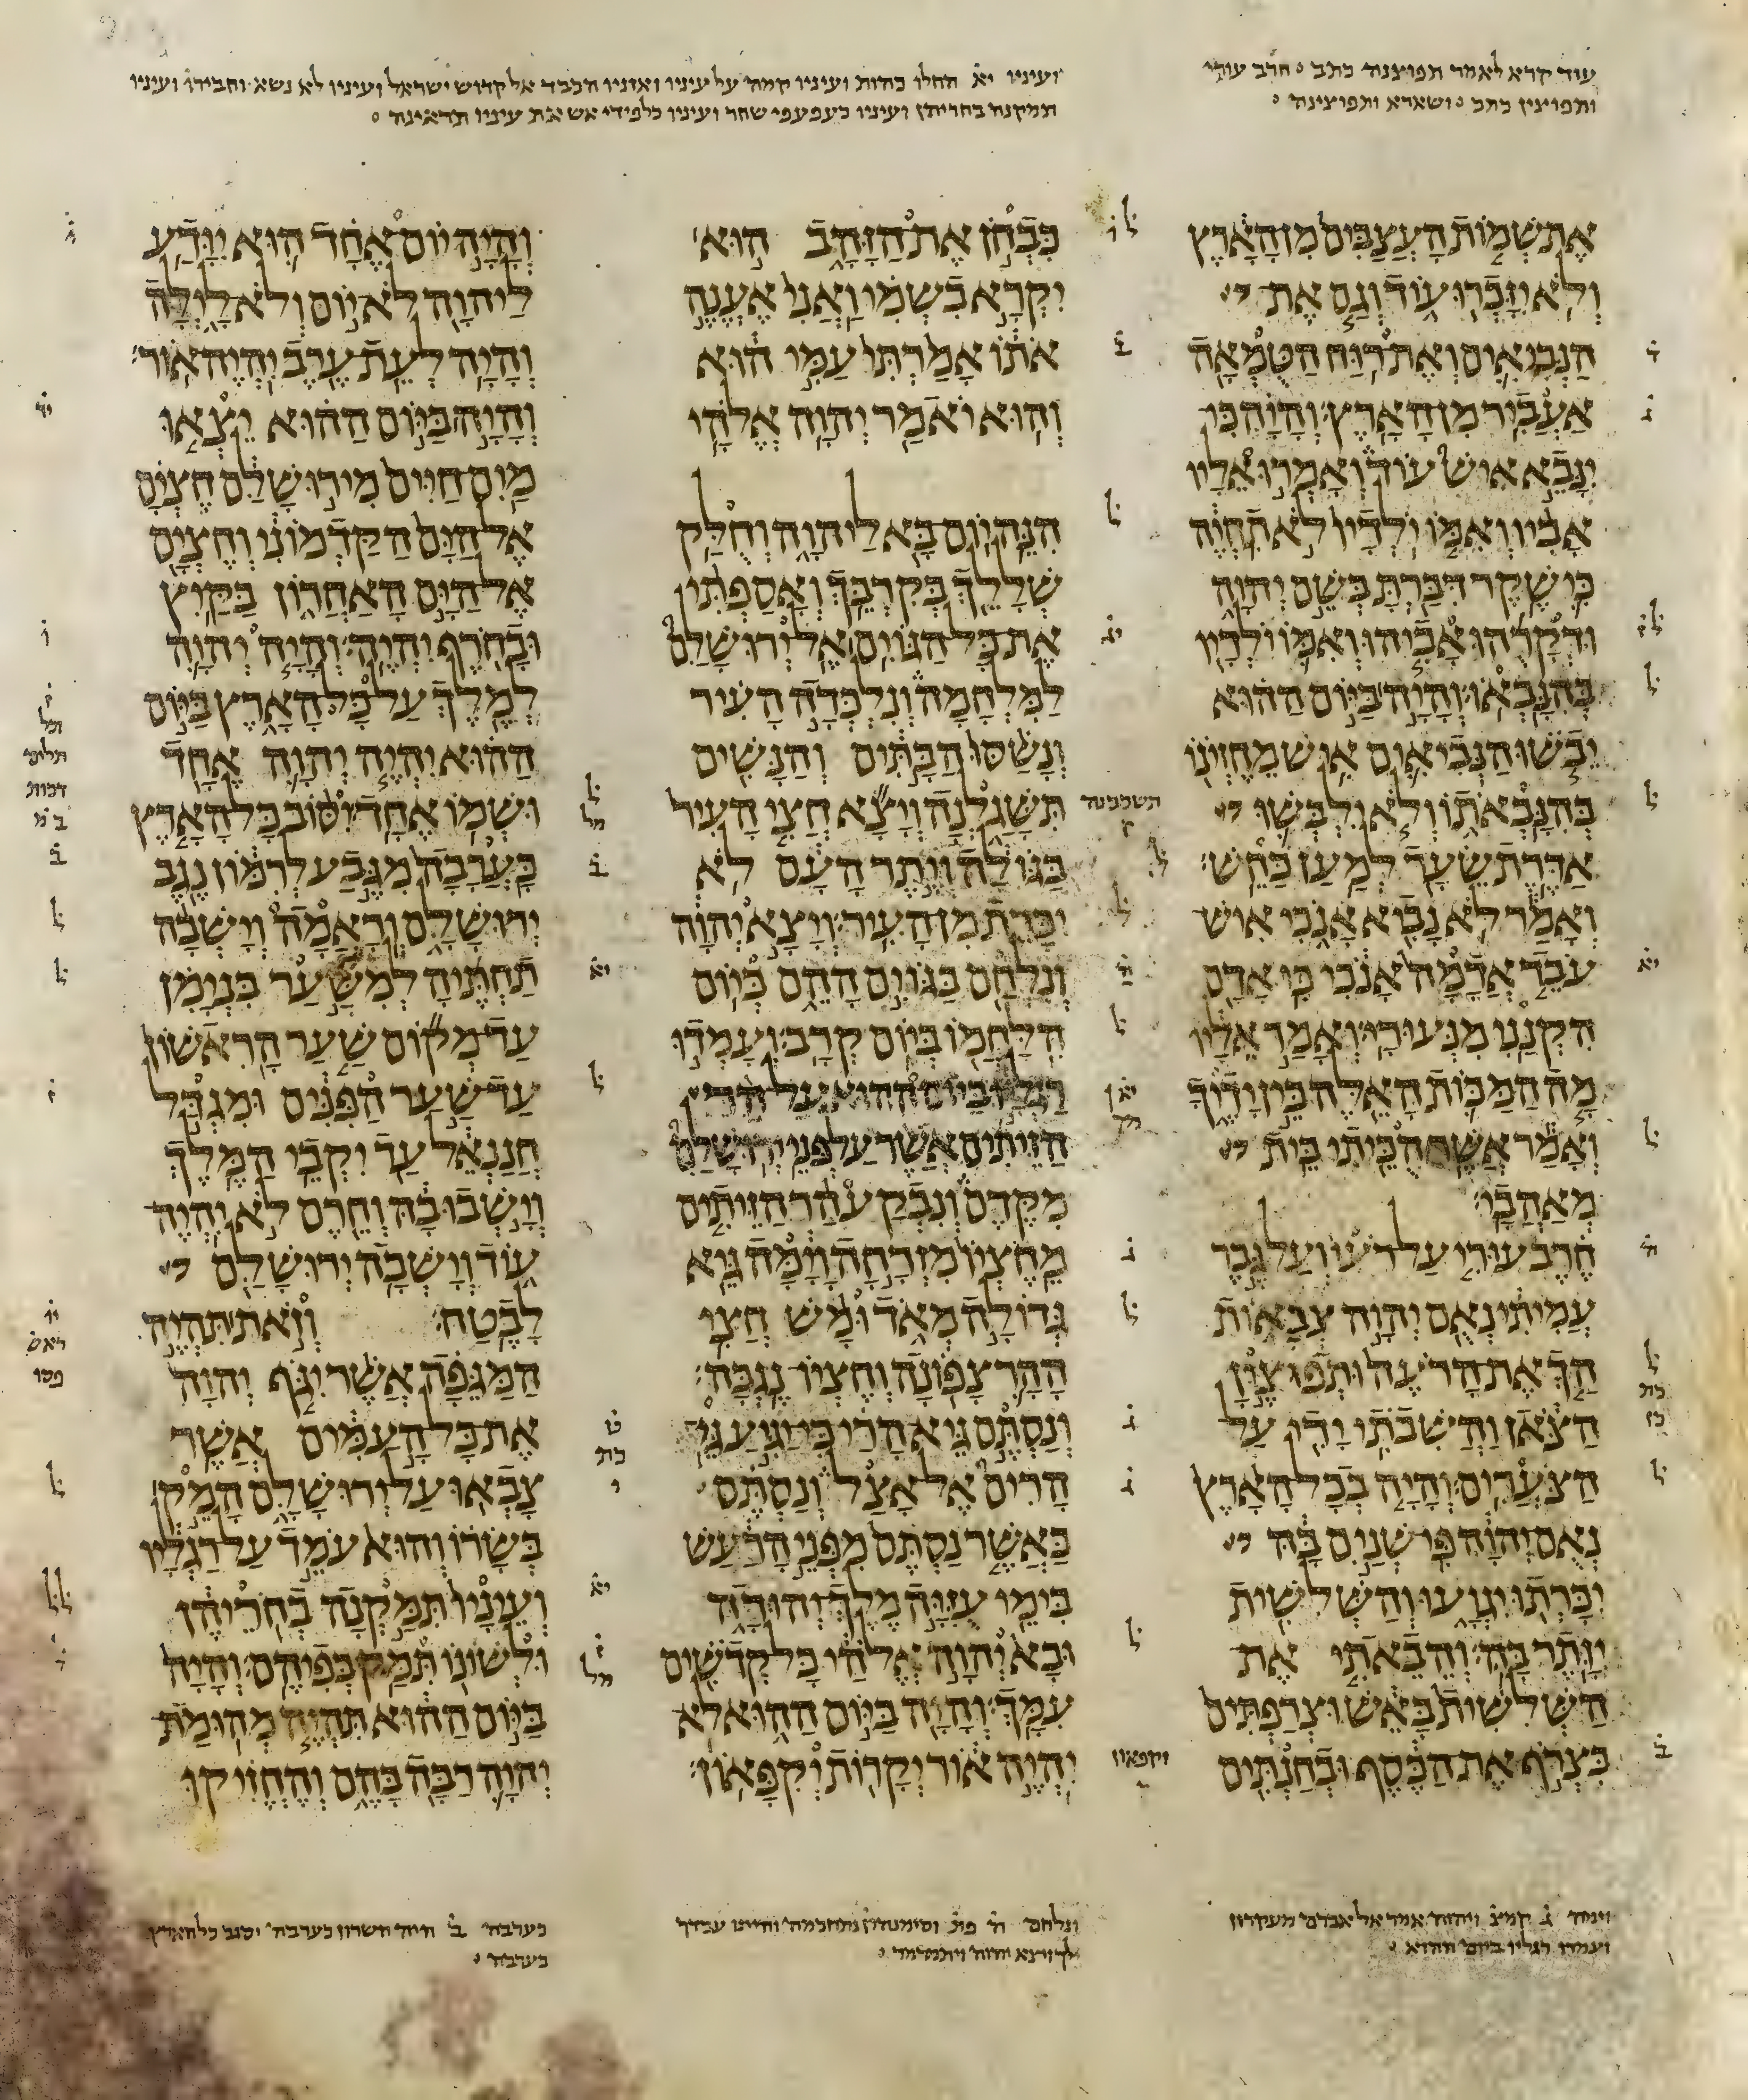 עוד קרא לאמר תפוצנה כתב ○ חרב עורי
ותפוצין כתב ○ ושארא ותפוצינה ○
ועיניו יא̇ החלו כהות ועיניו קמה על עיניו ואזניו הכבד אל קדוש ישראל ועיניו לא נשא וחבירו ועיניו
תמקנה בחריהן ועיניו כעפעפי שחר ועיניו כלפידי אש את עיניו תראינה ○
את שמות העצבים מן הארץ
ולא יזכרו עוד וגם את
הנביאים ואת רוח הטמאה
אעביר מן הארץ׃ והיה כי
ינבא איש עוד ואמרו אליו
אביו ואמו ילדיו לא תחיה
כי שקר דברת בשם יהוה
ודקרהו אביהו ואמו ילדיו
בהנבאו׃ והיה ביום ההוא
יבשו הנביאים איש מחזינו
בהנבאתו ולא ילבשו
אדרת שער למען כחש׃
ואמר לא נביא אנכי איש
עבד אדמה אנכי כי אדם
הקנני מנעורי׃ ואמר אליו
מה המכות האלה בין ידיך
ואמר אשר הכיתי בית
מאהבי׃
חרב עורי על רעי ועל גבר
עמיתי נאם יהוה צבאות
הך את הרעה ותפוצין
הצאן והשבתי ידי על
הצערים׃ והיה בכל הארץ
נאם יהוה פי שנים בה
יכרתו יגועו והשלשית
יותר בה׃ והבאתי את
השלשית באש וצרפתים
כצרף את הכסף ובחנתים
כבחן את הזהב הוא
יקרא בשמי ואני אענה
אתו אמרתי עמי הוא
והוא יאמר יהוה אלהי
הנה יום בא ליהוה וחלק
שללך בקרבך׃ ואספתי
את כל הגוים אל ירושלם
למלחמה ונלכדה העיר
ונשסו הבתים והנשים
תשגלנה ויצא חצי העיר
בגולה ויתר העם לא
יכרת מן העיר׃ ויצא יהוה
ונלחם בגוים ההם כיום
הלחמו ביום קרב׃ ועמדו
רגליו ביום ההוא על הר
הזיתים אשר על פני ירושלם
מקדם ונבקע הר הזיתים
מחציו מזרחה וימה גיא
גדולה מאד ומש חצי
ההר צפונה וחציו נגבה׃
ונסתם גיא הרי כי יגיע גי
הרים אל אצל ונסתם
כאשר נסתם מפני הרעש
בימי עזיה מלך יהודה
ובא יהוה אלהי כל קדשים
עמך׃ והיה ביום ההוא לא
יהיה אור יקרות וקפאון׃
והיה יום אחד הוא יודע
ליהוה לא יום ולא לילה
והיה לעת ערב יהיה אור׃
והיה ביום ההוא יצאו
מים חיים מירושלם חצים
אל הים הקדמוני וחצים
אל הים האחרון בקיץ
ובחרף יהיה׃ והיה יהוה
למלך על כל הארץ ביום
ההוא יהיה יהוה אחד
ושמו אחד׃ יסוב כל הארץ
כערבה מגבע לרמון נגב
ירושלם וראמה וישבה
תחתיה למשער בנימן
עד מקום שער הראשון
עד שער הפנים ומגדל
חננאל עד יקבי המלך׃
וישבו בה וחרם לא יהיה
עוד וישבה ירושלם
לבטח׃ וזאת תהיה
המגפה אשר יגף יהוה
את כל העמים אשר
צבאו על ירושלם המק
בשרו והוא עמד על רגליו
ועיניו תמקנה בחריהן
ולשונו תמק בפיהם׃ והיה
ביום ההוא תהיה מהומת
יהוה רבה בהם והחזיקו
וימה ג̇ קמצ̇ ויהוה אמר אל אברם מעקרון
ועמדו רגליו ביום ההוא ○
ונלחם ה̇ פת̇
לך ויצא יהוה ○
כערבה ב̇ היה השרון כערבה יסוב כל הארץ
כערבה ○